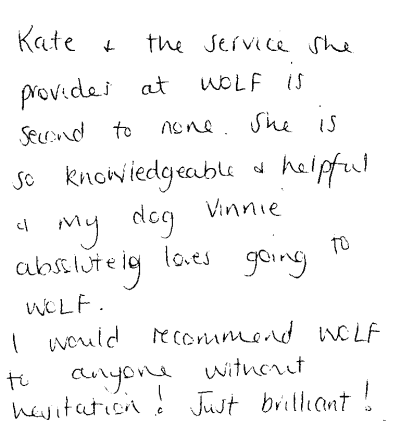 Kate & the service she
provides at WOLF is
second to none. She is
so knowledgeable & helpful
& my dog Vinnie
absolutely loves going to
WOLF.
I would recommend WOLF
to anyone without
hesitation! Just brilliant!